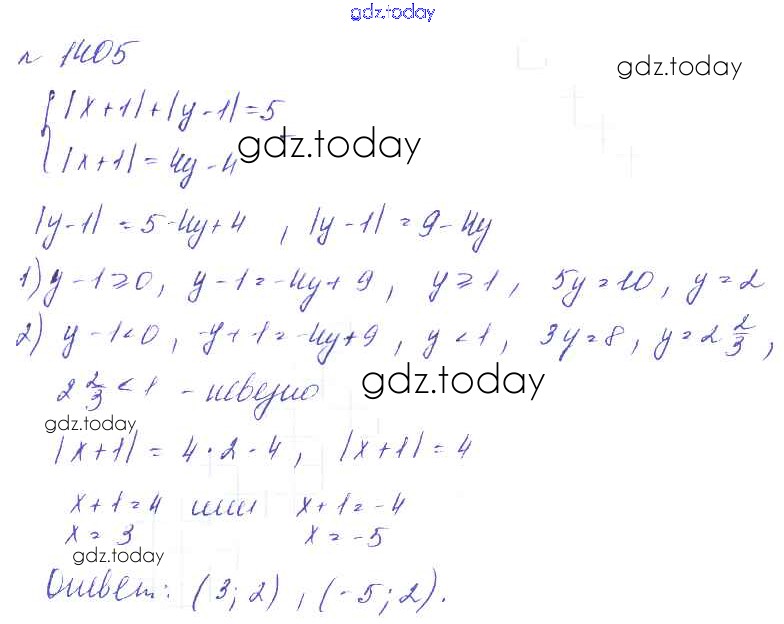 gdz.today
n 1405
gdz.today
{ |x+1|+|y-1|=5
|x+1|=4y-4
gdz.today
|y-1| = 5-4y+4 , |y-1|=9-4y
1) y-1≥0, y-1=-4y+9, y≥1, 5y=10, y=2
2) y-1<0, -y+1=-4y+9, y<1, 3y=8, y=2 2/3,
2 2/3 < 1 - неверно
gdz.today
gdz.today
|x+1| = 4·2-4, |x+1|=4
x+1=4 или x+1=-4
x=3 x=-5
gdz.today
Ответ: (3;2), (-5;2).